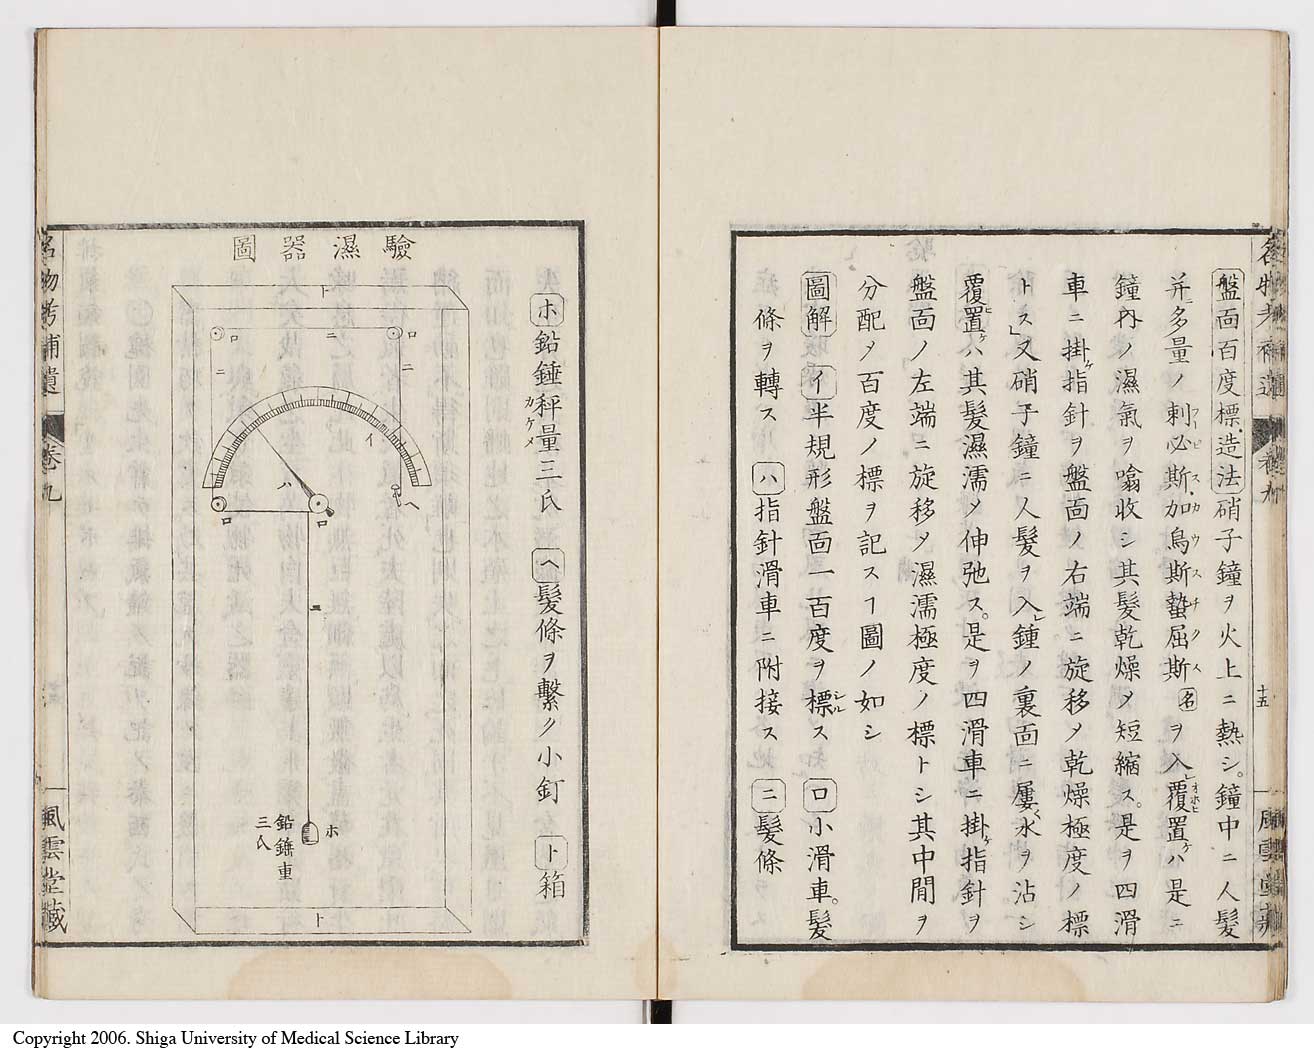 盤面百度標造法硝子鐘ヲ火上ニ熱シ。鐘中ニ人髮
并ニ多量ノ刺必斯加烏斯蟄屈斯名ヲ入レ覆置ケハ是ニ
アヒス、カウスチクス
オホヒ
鐘内ノ濕氣ヲ噏收シ其髮乾燥メ短縮ス。是ヲ四滑
車ニ掛ケ指針ヲ盤面ノ右端ニ旋移メ乾燥極度ノ標
トス」又硝子鐘ニ人髮ヲ入レ鐘ノ裏面ニ屢〻水ヲ沾シ
覆ヒ置ケハ其髮濕濡メ伸弛ス。是ヲ四滑車ニ掛ケ指針ヲ
盤面ノ左端ニ旋移メ濕濡極度ノ標トシ其中間ヲ
分配メ百度ノ標ヲ記スヿ圖ノ如シ
圖解 イ半規形盤面一百度ヲ標ス ロ小滑車。髮
シル
條ヲ轉ス ハ指針滑車ニ附接ス ニ髮條
名物考補遺 卷九
十五
風雲堂藏
ホ鉛錘秤量三氏 ヘ髮條ヲ繫ク小釘 ト箱
カケメ
驗濕器圖
ト
ロ
ニ
ロ
ニ
ニ
イ
ハ
ヘ
ロ
ロ
ホ
鉛錘重
三氏
ト
名物考補遺 卷九
風雲堂藏
Copyright 2006. Shiga University of Medical Science Library